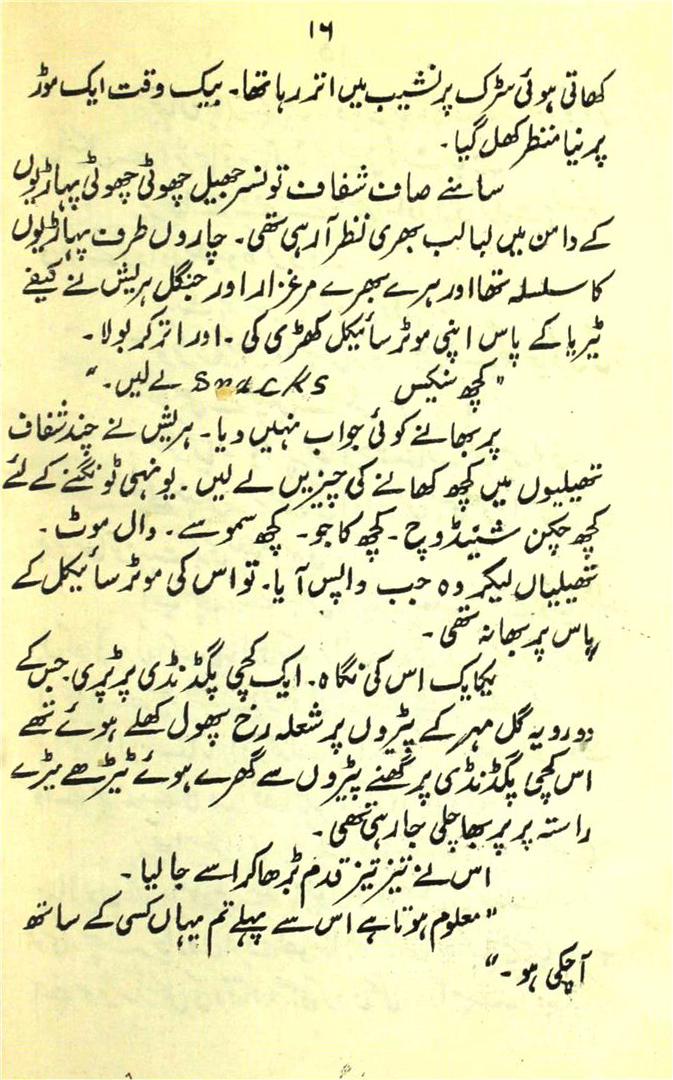 ۱۶
کھاتی ہوئی سڑک پر نشیب میں اتر رہا تھا۔ بیک وقت ایک موڑ
پر نیا منظر کھل گیا۔
سامنے صاف شفاف تونسر جھیل چھوٹی چھوٹی پہاڑیوں
کے دامن میں لبالب بھری نظر آ رہی تھی۔ چاروں طرف پہاڑیوں
کا سلسلہ تھا اور ہرے بھرے مرغزار اور جنگل ہریش نے کیفے
ٹیریا کے پاس اپنی موٹر سائیکل کھڑی کی۔ اور اتر کر بولا۔
"کچھ سنیکس Snacks لے لیں۔"
پربھا نے کوئی جواب نہیں دیا۔ ہریش نے چند شفاف
تھیلیوں میں کچھ کھانے کی چیزیں لے لیں۔ یونہی ٹونگنے کے لئے
کچھ چکن سینڈوچ۔ کچھ کاجو۔ کچھ سموسے۔ دال موٹ۔
تھیلیاں لیکر وہ جب واپس آیا۔ تو اس کی موٹر سائیکل کے
پاس پربھا نہ تھی۔
یکایک اس کی نگاہ۔ ایک کچی پگڈنڈی پر پڑی۔ جس کے
دو رویہ گل مہر کے پیڑوں پر شعلہ رخ پھول کھلے ہوئے تھے
اس کچی پگڈنڈی پر گھنے پیڑوں سے گھرے ہوئے ٹیڑھے میڑے
راستہ پر پربھا چلی جا رہی تھی۔
اس نے تیز تیز قدم بڑھا کر اسے جا لیا۔
"معلوم ہوتا ہے اس سے پہلے تم یہاں کسی کے ساتھ
آ چکی ہو۔"